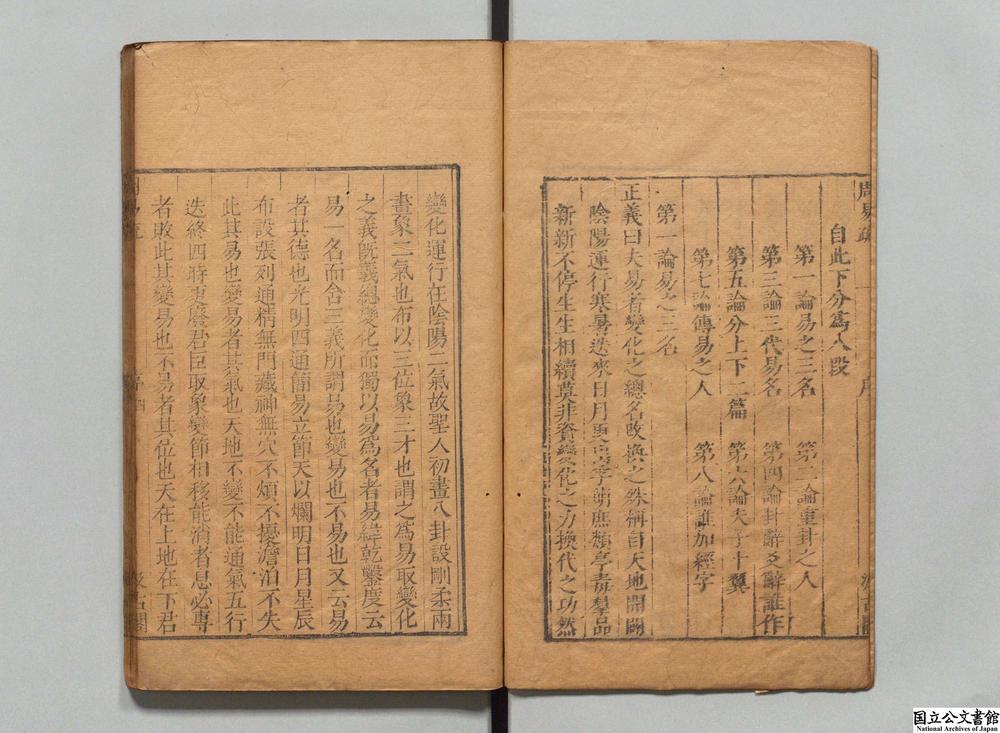 周易疏 序
自此下分爲八段
第一論易之三名 第二論重卦之人
第三論三代易名 第四論卦辭爻辭誰作
第五論分上下二篇 第六論夫子十翼
第七論傳易之人 第八論誰加經字
第一論易之三名
正義曰夫易者變化之總名改換之殊稱自天地開闢
陰陽運行寒暑迭來日月更出孚萌庶類亭毒羣品
新新不停生生相續莫非資變化之力換代之功然
變化運行在陰陽二氣故聖人初畫八卦設剛柔兩
畫象二氣也布以三位象三才也謂之爲易取變化
之義旣義總變化而獨以易爲名者易緯乾鑿度云
易一名而含三義所謂易也變易也不易也又云易
者其德也光明四通簡易立節天以爛明日月星辰
布設張列通精無門藏神無穴不煩不擾澹泊不失
此其易也變易者其氣也天地不變不能通氣五行
迭終四時更廢君臣取象變節相移能消者息必專
者敗此其變易也不易者其位也天在上地在下君
国立公文書館
National Archives of Japan